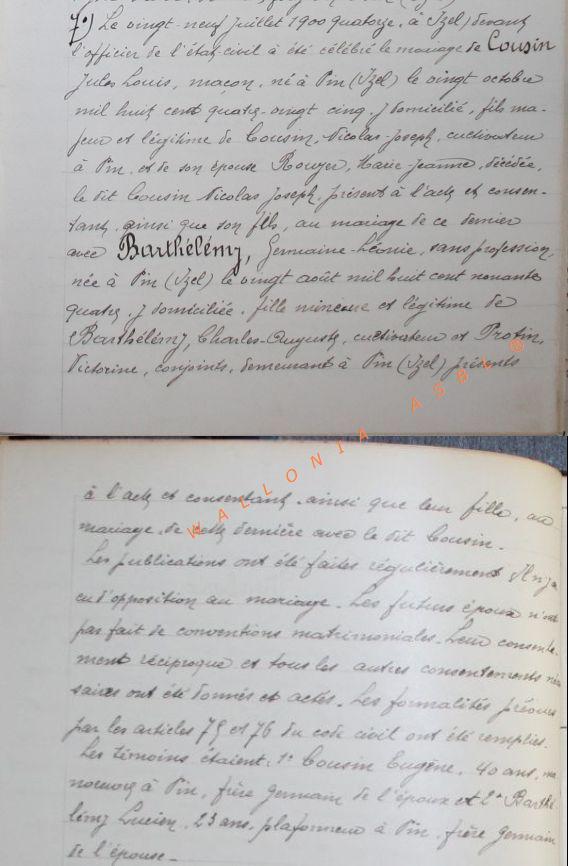 7°) Le vingt-neuf Juillet 1900 quatorze, à Izel, devant
l'officier de l'état-civil à été célébré le mariage de Cousin
Jules Louis, maçon, né à Pin (Izel) le vingt octobre
mil huit cent quatre-vingt cinq, y domicilié, fils ma-
jeur et légitime de Cousin, Nicolas-Joseph, cultivateur
à Pin, et de son épouse Rouyer, Marie Jeanne, décédée,
le dit Cousin Nicolas Joseph, présent à l'acte et consen-
tant, ainsi que son fils, au mariage de ce dernier
avec Barthélémy, Germaine-Léonie, sans profession,
née à Pin (Izel) le vingt août mil huit cent nonante
quatre, y domiciliée, fille mineure et légitime de
Barthélémy, Charles-Auguste, cultivateur et Protin,
Victorine, conjoints, demeurant à Pin (Izel) présents
WALLONIA ASBL ®
à l'acte et consentant, ainsi que leur fille, au
mariage de cette dernière avec le dit Cousin.
Les publications ont été faites régulièrement Il n'y a
eu d'opposition au mariage. Les futurs époux n'ont
pas fait de conventions matrimoniales. Leur consente-
ment réciproque et tous les autres consentements néces
saires ont été donnés et actés. Les formalités prévues
par les articles 75 et 76 du code civil ont été remplies.
Les témoins étaient: 1° Cousin Eugène, 40 ans, ma
noeuvre à Pin, frère germain de l'époux et 2° Barthé
lémy Lucien, 23 ans, plafonneur à Pin, frère germain
de l'épouse.-